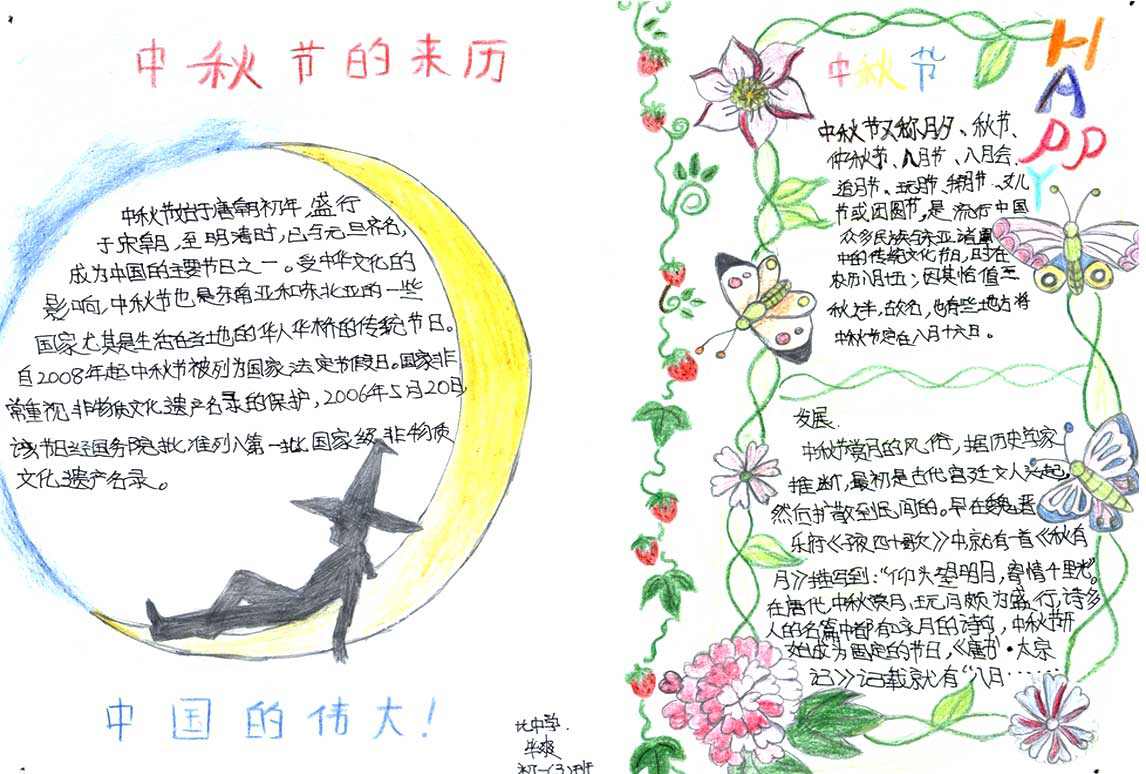 中秋节的来历
中秋节始于唐朝初年,盛行
于宋朝,至明清时,已与元旦齐名,
成为中国的主要节日之一。受中华文化的
影响,中秋节也是东南亚和东北亚的一些
国家尤其是生活在当地的华人华桥的传统节日。
自2008年起中秋节被列为国家法定节假日。国家非
常重视非物质文化遗产名录的保护,2006年5月20日,
该节日经国务院批准列入第一批国家级非物质
文化遗产名录。
中国的伟大!
中学.
初一(3)班
中秋节
HAPPY
中秋节又称月夕、秋节、
仲秋节、八月节、八月会、
追月节、玩月节、拜月节、女儿
节或团圆节,是流行中国
众多民族与东亚诸国
中的传统文化节日,时在
农历八月十五;因其恰值三
秋之半,故名,也有些地方将
中秋节定在八月十六日。
发展.
中秋节赏月的风俗,据历史学家
推断,最初是古代宫廷文人兴起,
然后扩散到民间的。早在魏晋
乐府《子夜四十歌》中,就有一首《秋有
月》描写到:“仰头望明月,寄情千里光”。
在唐代,中秋赏月、玩月颇为盛行,诗多
人的名篇中都有咏月的诗句,中秋节开
始成为固定的节日,《唐书·太宗
记》记载就有“八月······